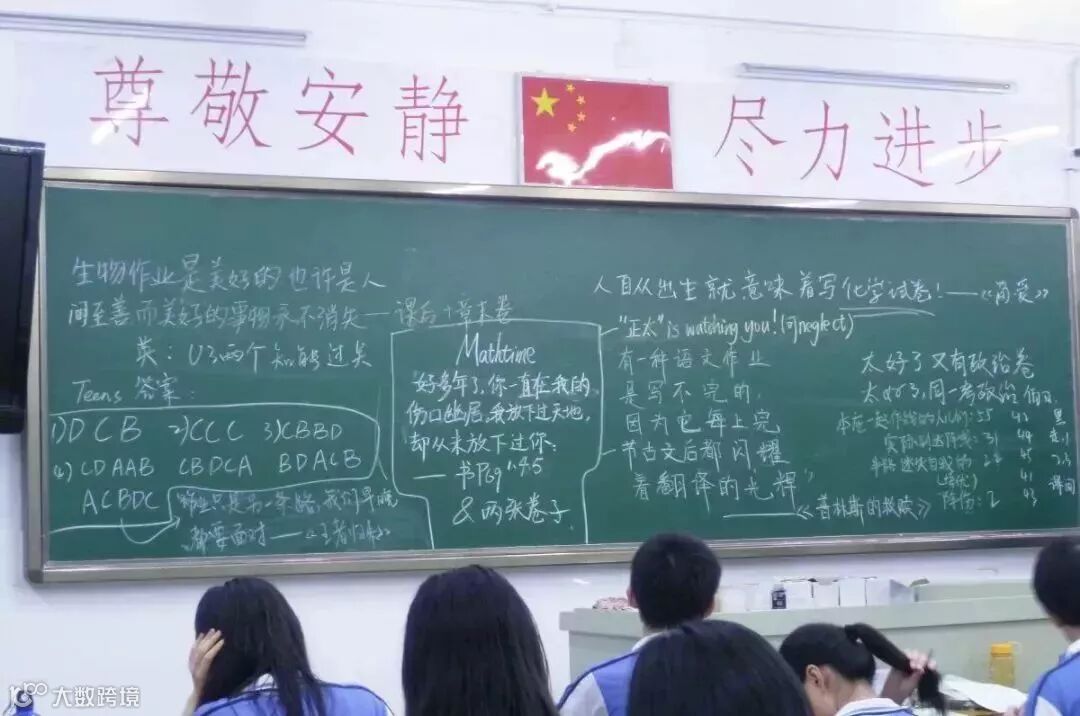 尊敬安静
尽力进步
生物作业是美好的也许是人
间至善而美好的事物永不消失——课后+章末卷
英：U3两个知能过关
Teens 答案：
1) DCB 2) CCC 3) CBBD
4) CDAAB CBDCA BDACB
ACBDC
作业只是另一条路，我们早晚
都要面对——《王者归来》
Mathtime
好多年了，你一直在我的
伤口幽居，我放下过天地，
却从未放下过你：
——书P69 1.4.5
& 两张卷子
人自从出生就意味着写化学试卷！——《简爱》
"正太" is watching you! (可neglect)
有一种语文作业
是写不完的，
因为它每上完
一节古文后都闪耀
着翻译的光辉"
——《肖朴斯的救赎》
太好了又有政治卷
太好了，周一考政治
35
实际到达
31
降份：2
43
课间
大数跨境